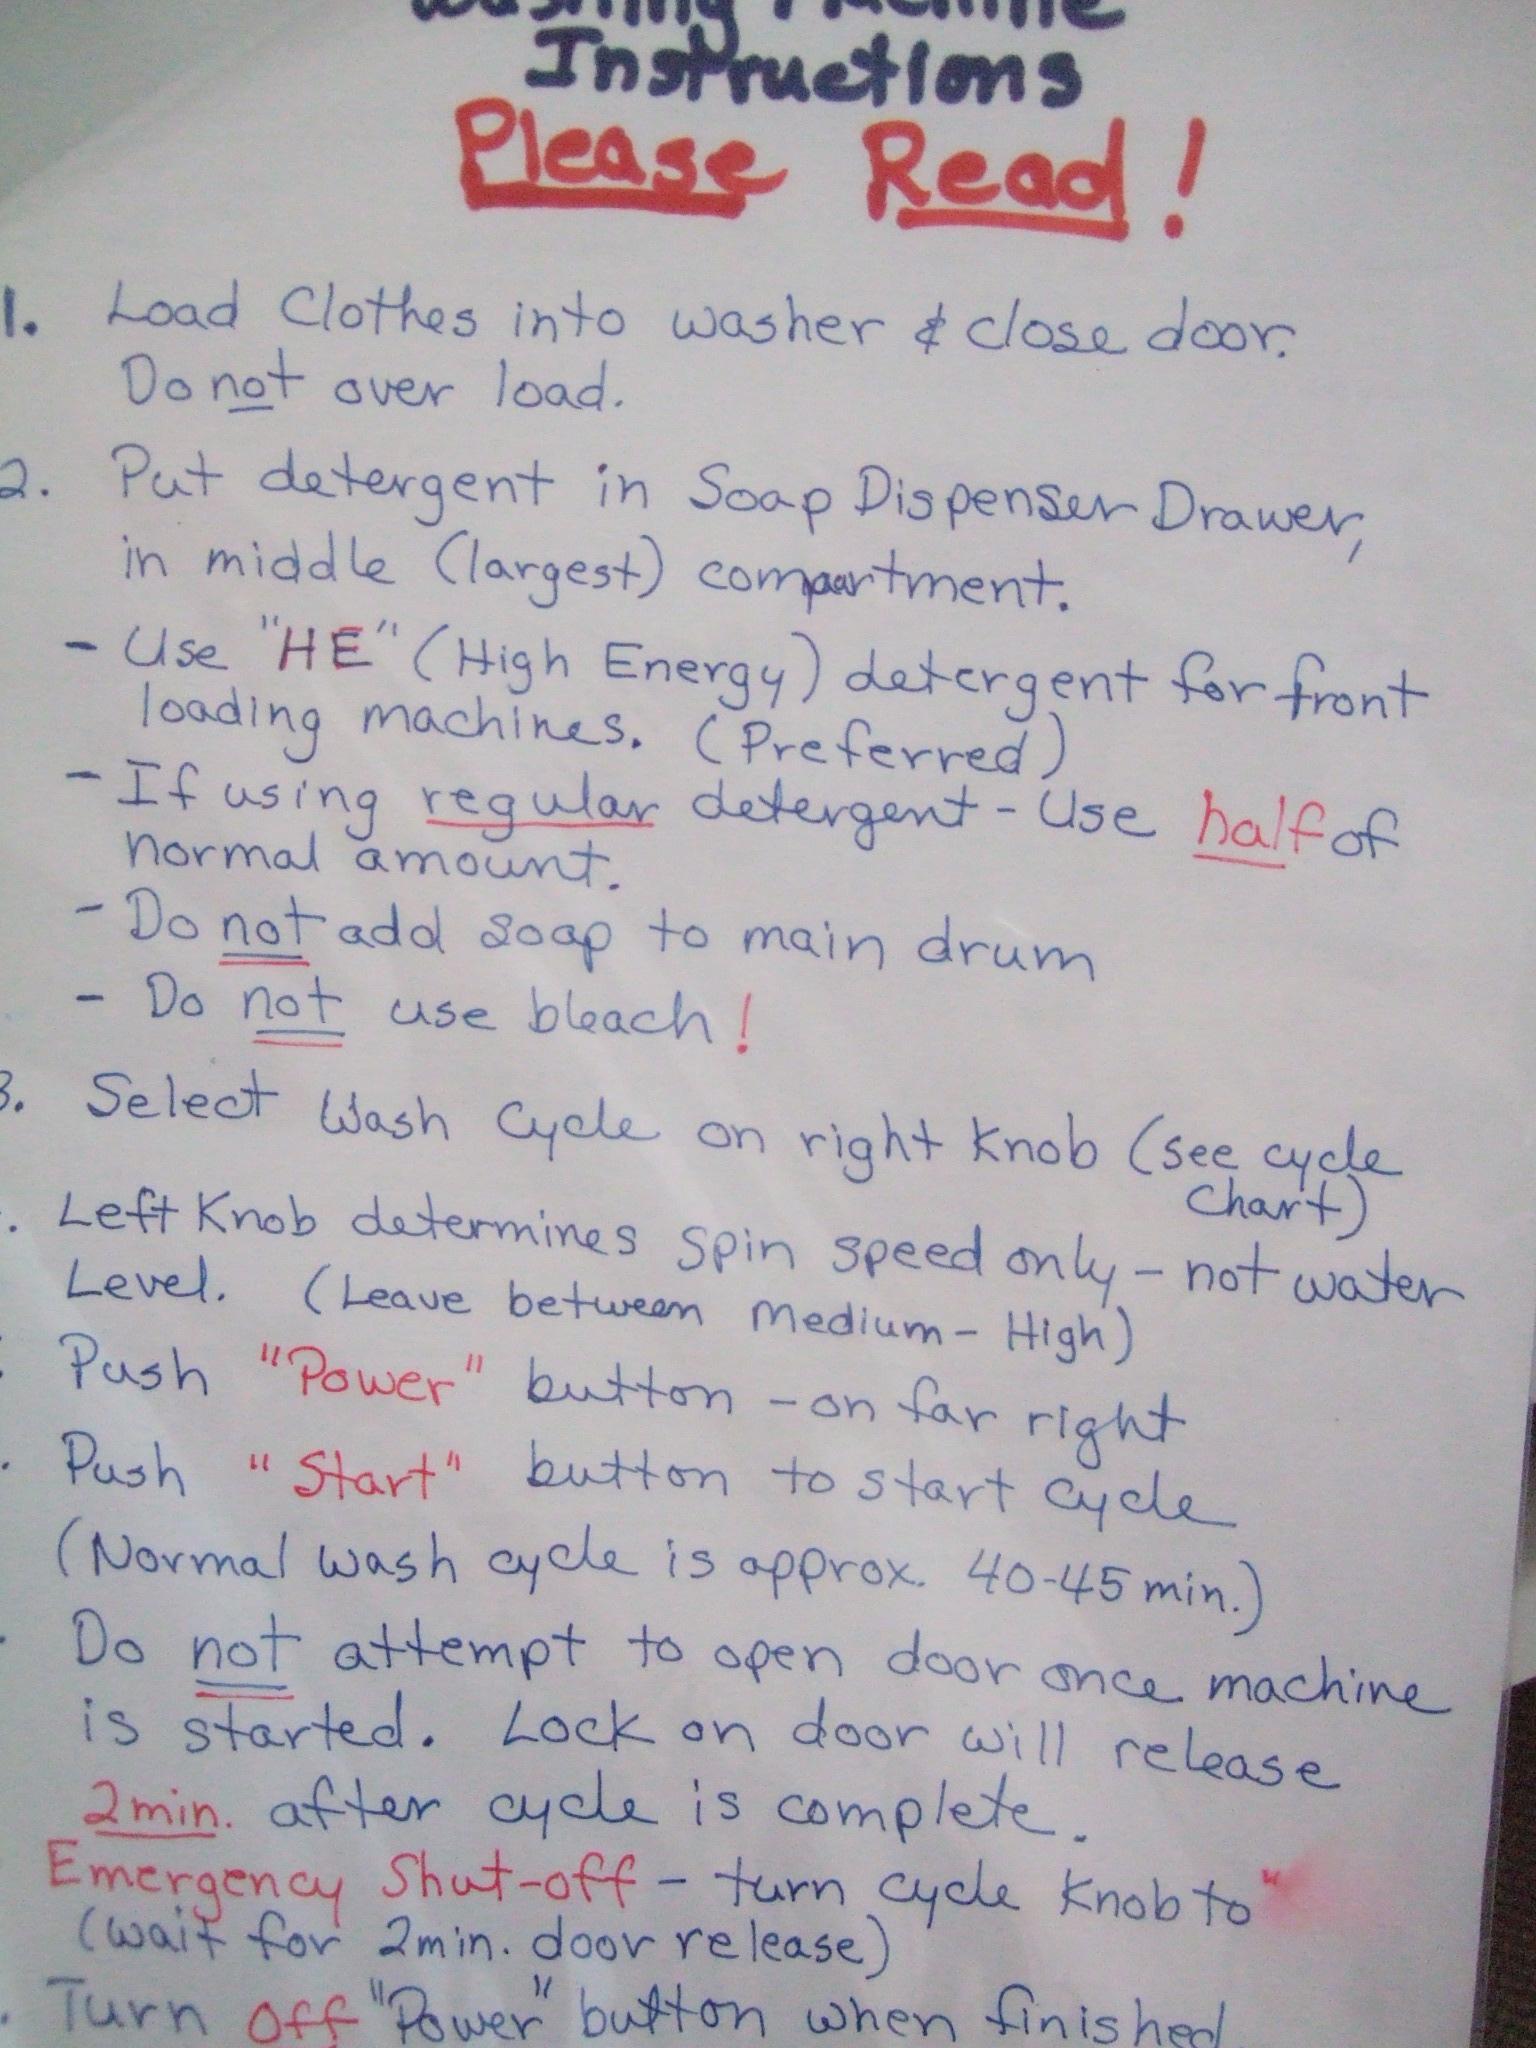 Washing Machine
Instructions
Please Read!
1. Load Clothes into washer & close door.
Do not over load.
2. Put detergent in Soap Dispenser Drawer,
in middle (largest) compartment.
- Use "HE" (High Energy) detergent for front
loading machines. (Preferred)
- If using regular detergent - Use half of
normal amount.
- Do not add soap to main drum
- Do not use bleach!
3. Select Wash Cycle on right Knob (see cycle
Chart)
. Left Knob determines spin speed only - not water
Level. (Leave between Medium - High)
Push "Power" button - on far right
. Push "Start" button to start cycle
(Normal wash cycle is approx. 40-45 min.)
Do not attempt to open door once machine
is started. Lock on door will release
2 min. after cycle is complete.
Emergency Shut-off - turn cycle Knob to "
(wait for 2 min. door release)
. Turn Off "Power" button when finished